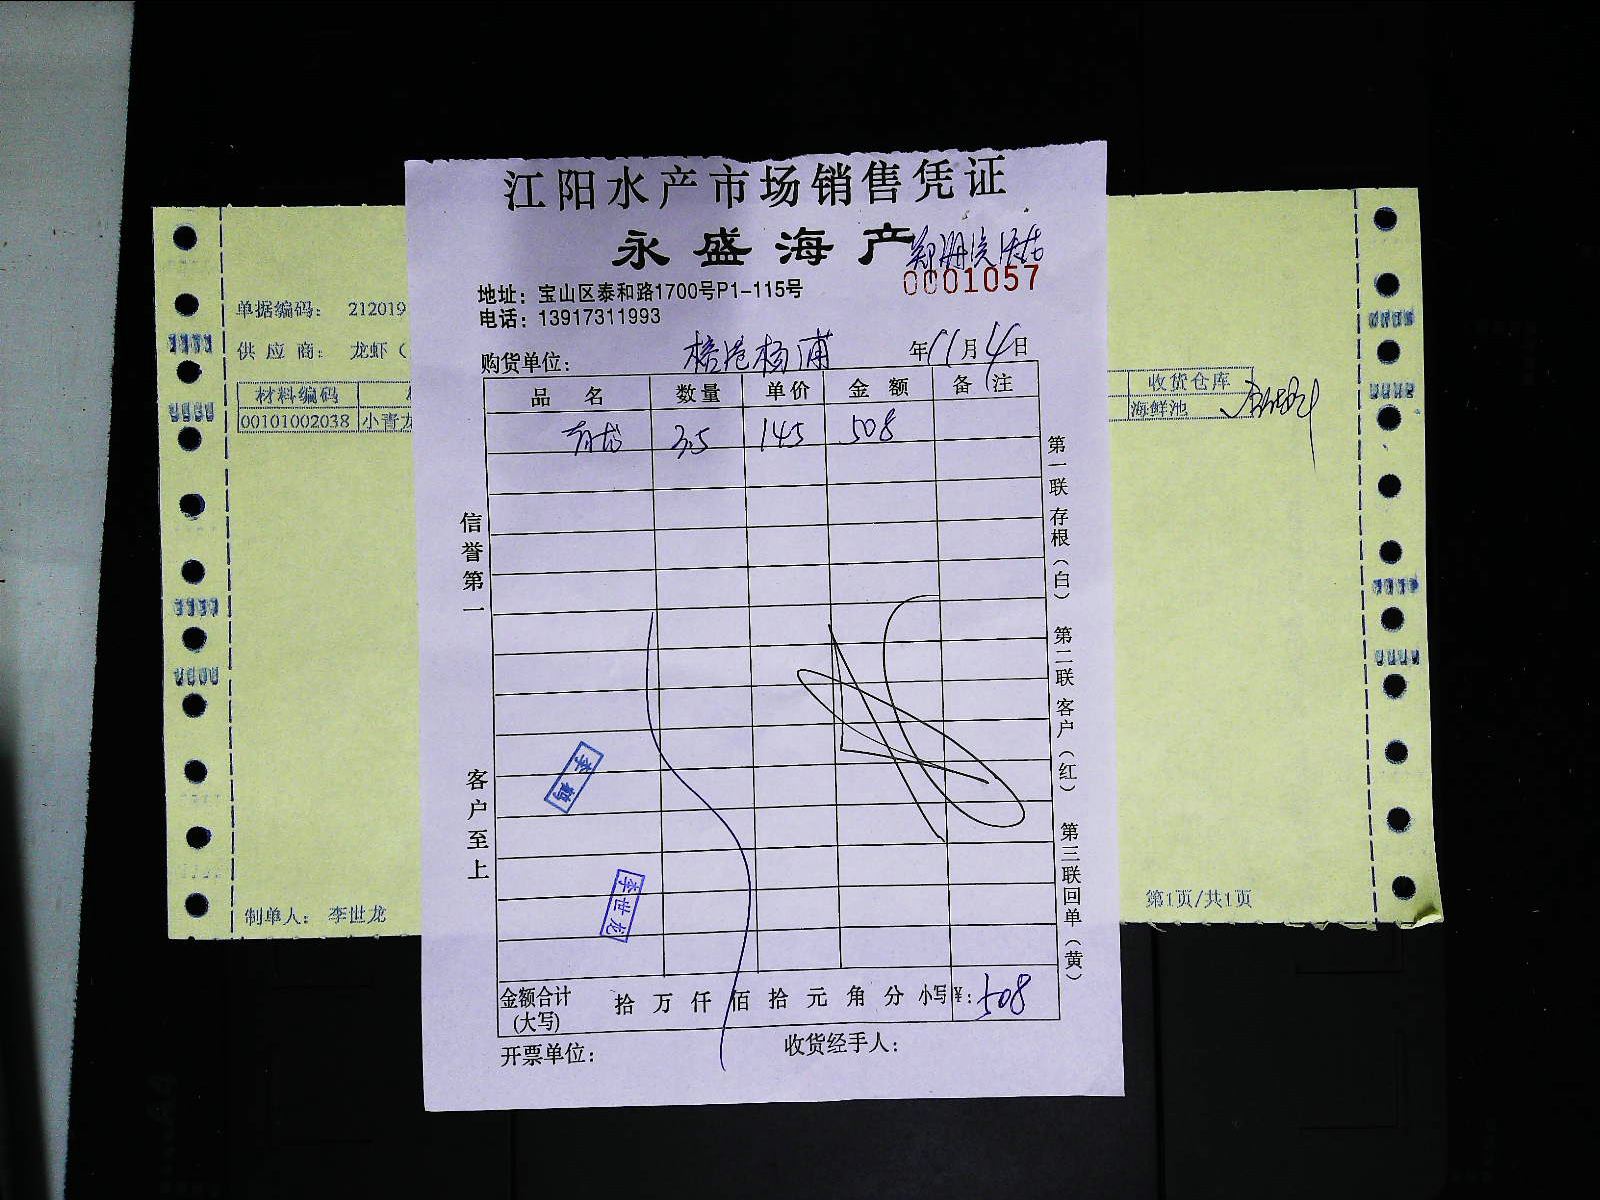 江阳水产市场销售凭证
永盛海产
0001057
地址：宝山区泰和路1700号P1-115号
电话：13917311993
购货单位： 杨浦 年11月4日
品名 数量 单价 金额 备注
青龙 3.5 145 508
信誉第一
客户至上
第一联 存根（白） 第二联 客户（红） 第三联 回单（黄）
李鹤
李世龙
金额合计(大写) 拾 万 仟 佰 拾 元 角 分 小写¥：508
开票单位： 收货经手人：
单据编码： 212019
供应商： 龙虾（
材料编码
00101002038 小青龙
收货仓库
海鲜池
制单人： 李世龙
第1页/共1页